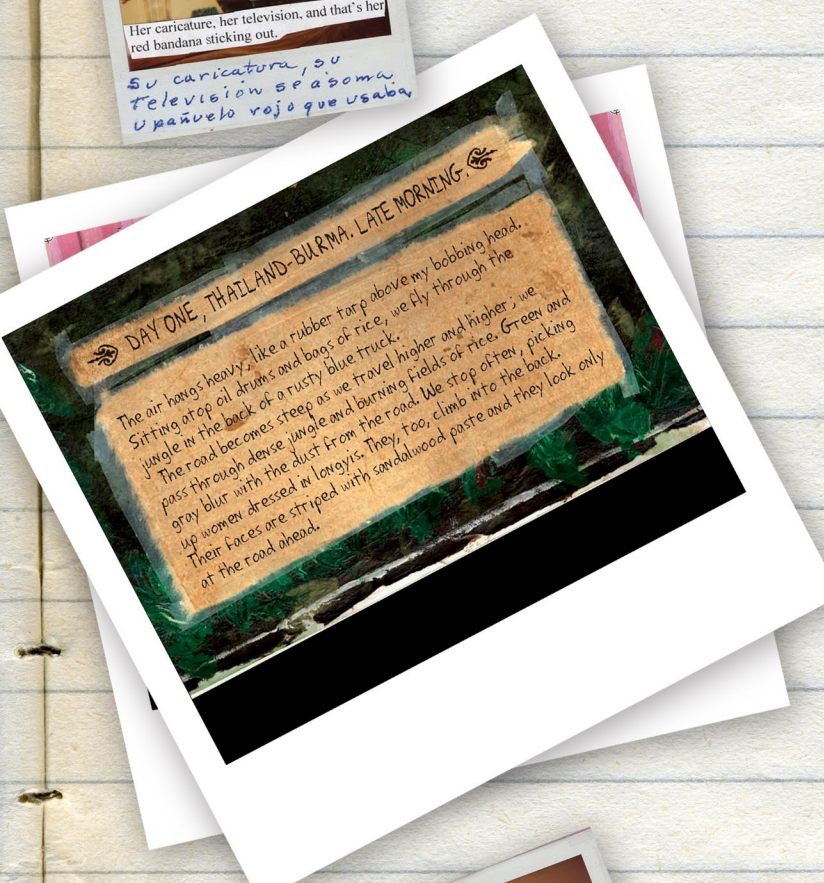 Her caricature, her television, and that's her
red bandana sticking out.
Su caricatura, su
televisión se asoma
u pañuelo rojo que usaba
DAY ONE, THAILAND-BURMA. LATE MORNING.
The air hangs heavy, like a rubber tarp above my bobbing head.
Sitting atop oil drums and bags of rice, we fly through the
jungle in the back of a rusty blue truck.
The road becomes steep as we travel higher and higher; we
pass through dense jungle and burning fields of rice. Green and
gray blur with the dust from the road. We stop often, picking
up women dressed in longyis. They, too, climb into the back.
Their faces are striped with sandalwood paste and they look only
at the road ahead.